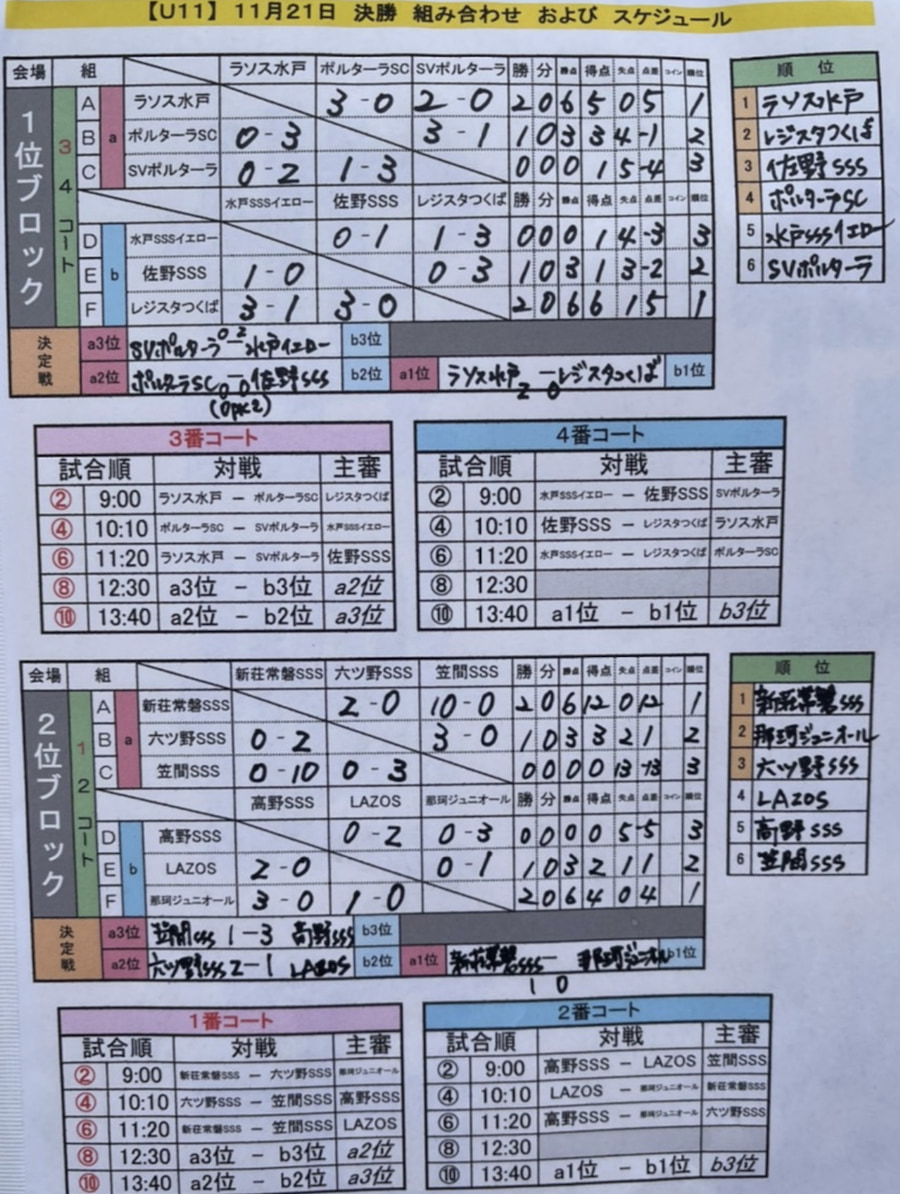 【U11】 11月21日 決勝 組み合わせ および スケジュール
会場 組 ラソス水戸 ポルターラSC SVポルターラ 勝 分 勝点 得点 失点 点差 コイン 順位
1位ブロック
3 4 コート
a
A ラソス水戸 3-0 2-0 2 0 6 5 0 5 1
B ポルターラSC 0-3 3-1 1 0 3 3 4 -1 2
C SVポルターラ 0-2 1-3 0 0 0 1 5 -4 3
水戸SSSイエロー 佐野SSS レジスタつくば 勝 分 勝点 得点 失点 点差 コイン 順位
b
D 水戸SSSイエロー 0-1 1-3 0 0 0 1 4 -3 3
E 佐野SSS 1-0 0-3 1 0 3 1 3 -2 2
F レジスタつくば 3-1 3-0 2 0 6 6 1 5 1
決定戦
a3位 SVポルターラ 0-2 水戸イエロー b3位
a2位 ポルターラSC 0-0 佐野SSS b2位 a1位 ラソス水戸 2-0 レジスタつくば b1位
(0PK2)
順位
1 ラソス水戸
2 レジスタつくば
3 佐野SSS
4 ポルターラSC
5 水戸SSSイエロー
6 SVポルターラ
3番コート
試合順 対戦 主審
② 9:00 ラソス水戸 - ポルターラSC レジスタつくば
④ 10:10 ポルターラSC - SVポルターラ 水戸SSSイエロー
⑥ 11:20 ラソス水戸 - SVポルターラ 佐野SSS
⑧ 12:30 a3位 - b3位 a2位
⑩ 13:40 a2位 - b2位 a3位
4番コート
試合順 対戦 主審
② 9:00 水戸SSSイエロー - 佐野SSS SVポルターラ
④ 10:10 佐野SSS - レジスタつくば ラソス水戸
⑥ 11:20 水戸SSSイエロー - レジスタつくば ポルターラSC
⑧ 12:30
⑩ 13:40 a1位 - b1位 b3位
会場 組 新荘常磐SSS 六ツ野SSS 笠間SSS 勝 分 勝点 得点 失点 点差 コイン 順位
2位ブロック
1 2 コート
a
A 新荘常磐SSS 2-0 10-0 2 0 6 12 0 12 1
B 六ツ野SSS 0-2 3-0 1 0 3 3 2 1 2
C 笠間SSS 0-10 0-3 0 0 0 0 13 -13 3
高野SSS LAZOS 那珂ジュニオール 勝 分 勝点 得点 失点 点差 コイン 順位
b
D 高野SSS 0-2 0-3 0 0 0 0 5 -5 3
E LAZOS 2-0 0-1 1 0 3 2 1 1 2
F 那珂ジュニオール 3-0 1-0 2 0 6 4 0 4 1
決定戦
a3位 笠間SSS 1-3 高野SSS b3位
a2位 六ツ野SSS 2-1 LAZOS b2位 a1位 新荘常磐SSS - 那珂ジュニオール b1位
1 0
順位
1 新荘常磐SSS
2 那珂ジュニオール
3 六ツ野SSS
4 LAZOS
5 高野SSS
6 笠間SSS
1番コート
試合順 対戦 主審
② 9:00 新荘常磐SSS - 六ツ野SSS 那珂ジュニオール
④ 10:10 六ツ野SSS - 笠間SSS 高野SSS
⑥ 11:20 新荘常磐SSS - 笠間SSS LAZOS
⑧ 12:30 a3位 - b3位 a2位
⑩ 13:40 a2位 - b2位 a3位
2番コート
試合順 対戦 主審
② 9:00 高野SSS - LAZOS 笠間SSS
④ 10:10 LAZOS - 那珂ジュニオール 新荘常磐SSS
⑥ 11:20 高野SSS - 那珂ジュニオール 六ツ野SSS
⑧ 12:30
⑩ 13:40 a1位 - b1位 b3位